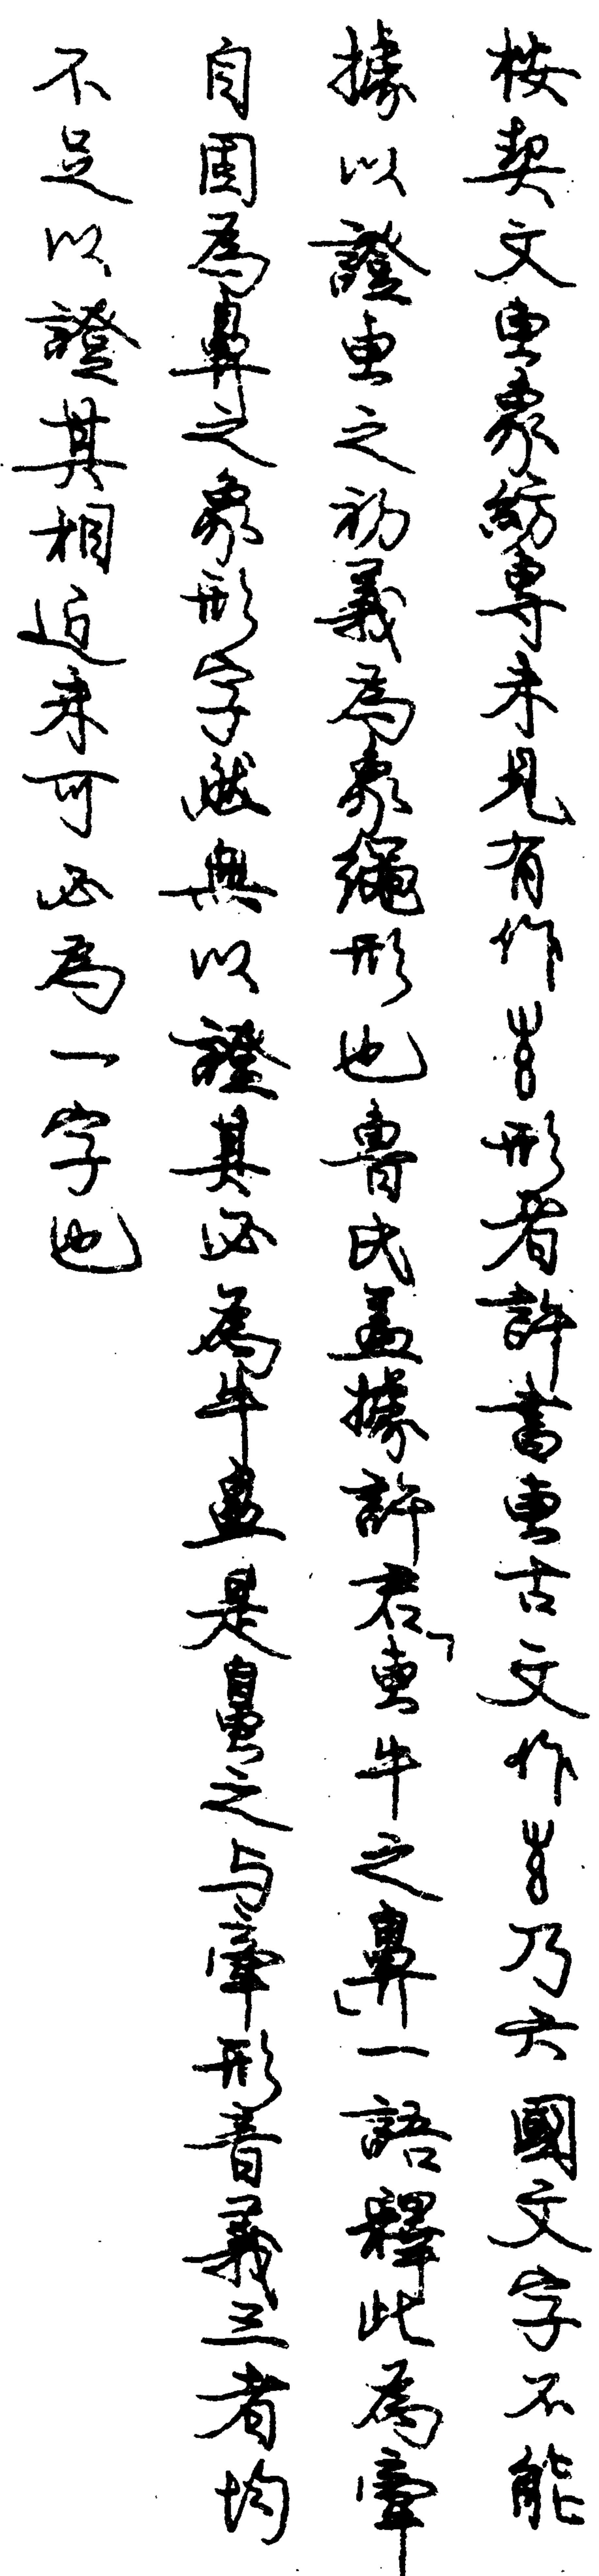 按契文叀象紡專未見有作形者許書叀古文作乃六國文字不能
據以證叀之初義為象繩形也魯氏蓋據許君「叀牛之鼻」一語釋此為牽
自固為鼻之象形字然無以證其必為牛畫是之与牽形音義三者均
不足以證其相近未可必為一字也